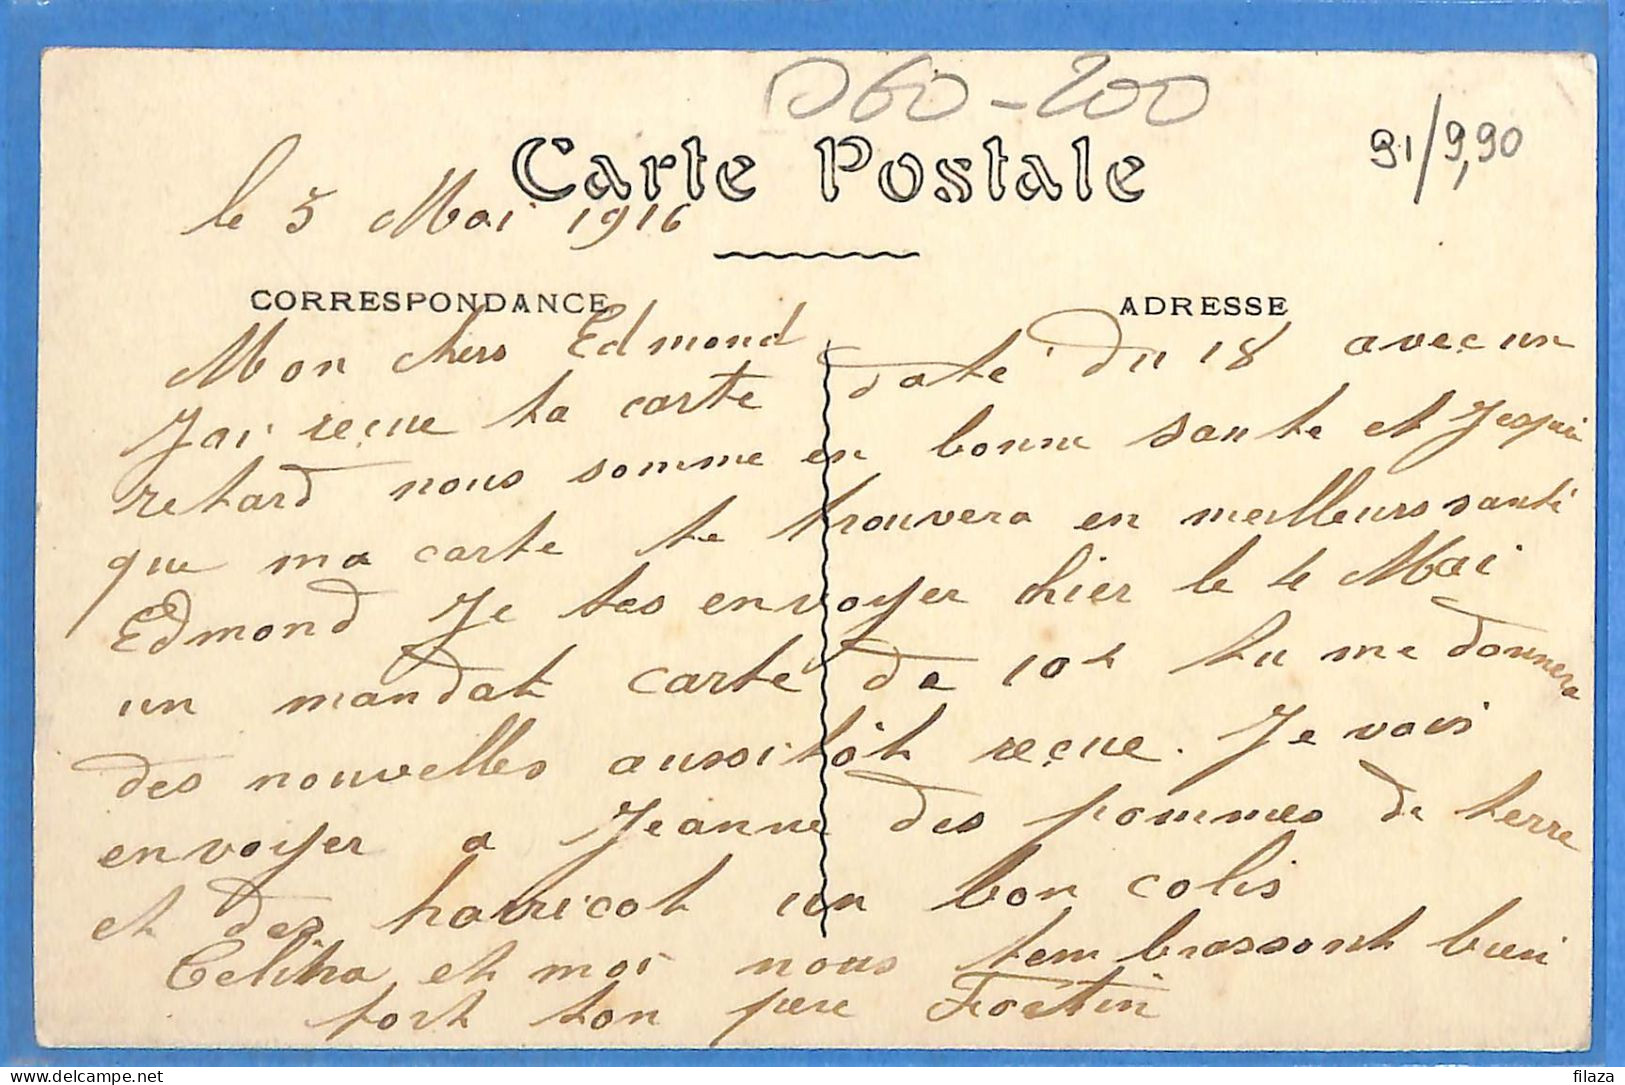 D60-200
Carte Postale
91/9,90
le 5 Mai 1916
CORRESPONDANCE
ADRESSE
Mon chers Edmond
J'ai reçue ta carte daté du 18 avec un
retard nous somme en bonne sante et J'espère
que ma carte te trouvera en meilleurs santé
Edmond Je tes envoyer hier le 4 Mai
un mandat carte de 10f tu me donnera
des nouvelles aussitôt reçue. Je vais
envoyer a Jeanne des pommes de terre
et des haricot un bon colis
Celina et moi nous tembrassont bien
fort ton père Foetin
delcampe.net
filaza